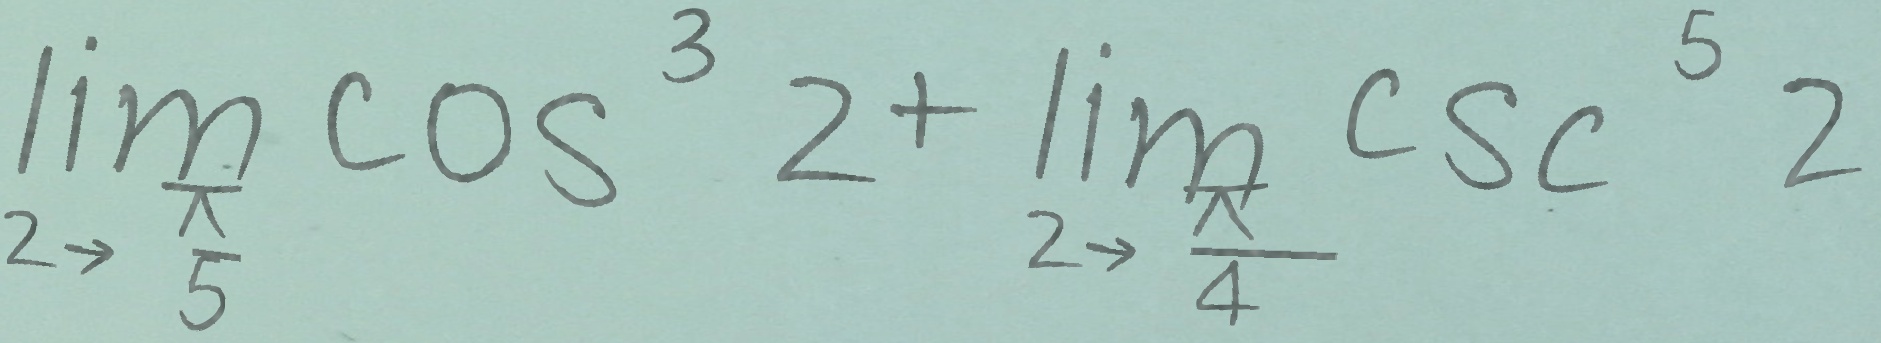 \lim_{z \to \frac{\pi}{5}} \cos^3 z + \lim_{z \to \frac{\pi}{4}} \csc^5 z